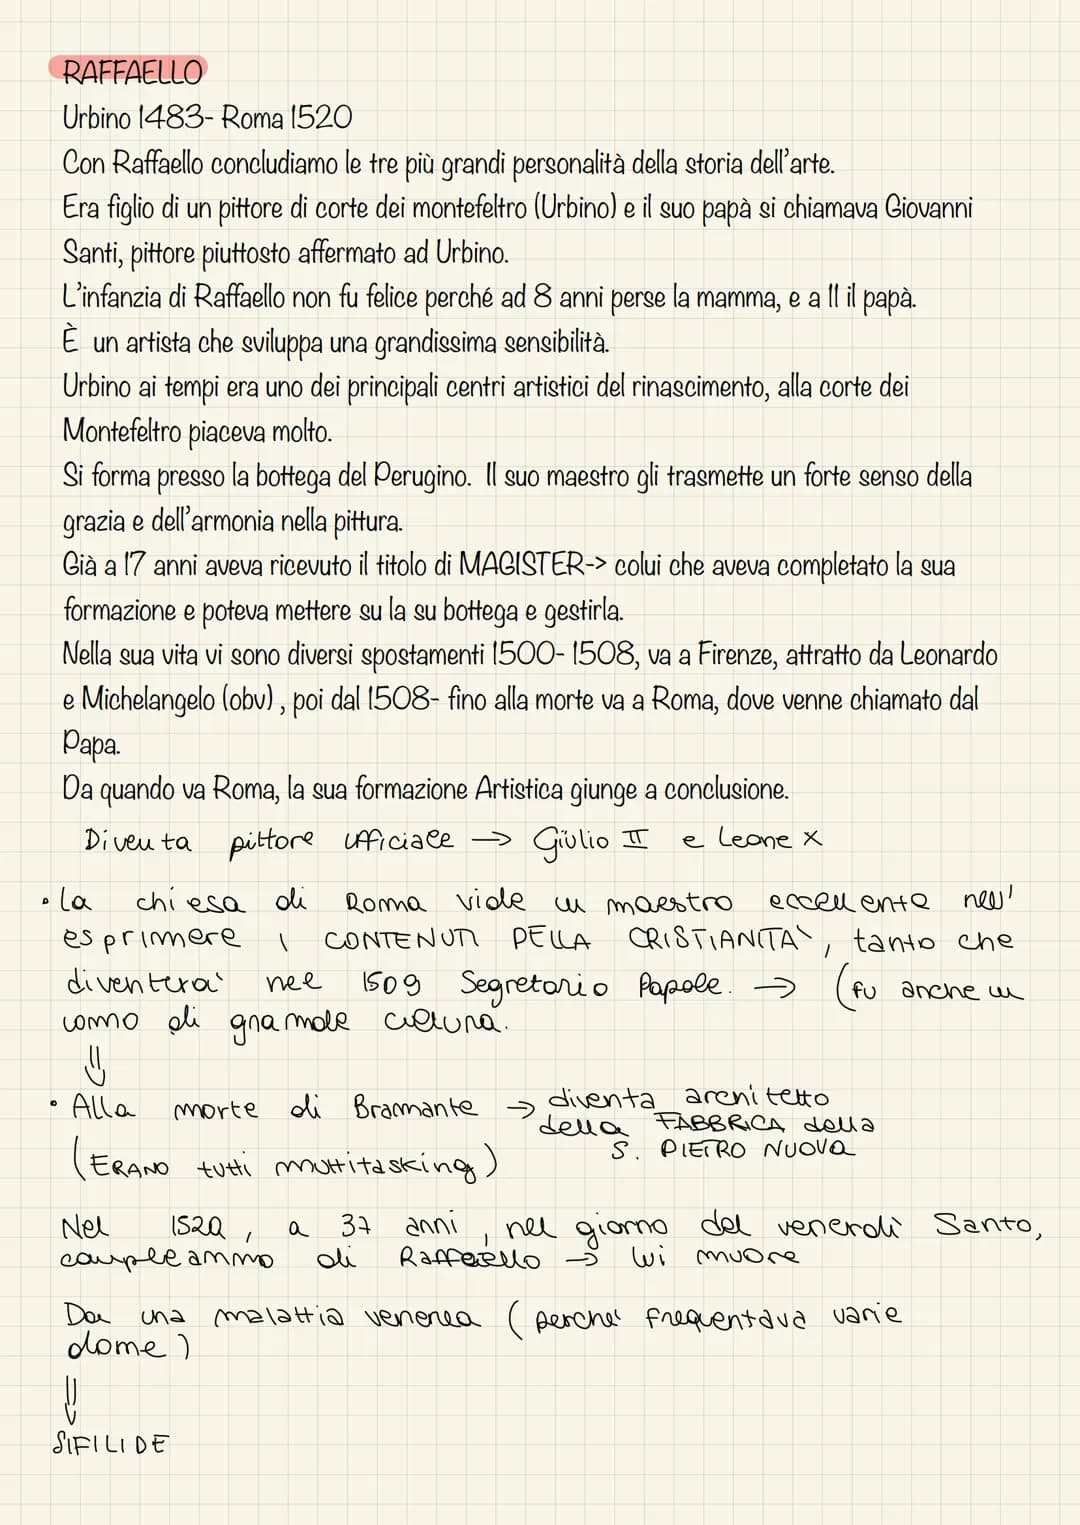 RAFFAELLO
Urbino 1483- Roma 1520
Con Raffaello concludiamo le tre più grandi personalità della storia dell'arte.
Era figlio di un pittore di corte dei montefeltro (Urbino) e il suo papà si chiamava Giovanni
Santi, pittore piuttosto affermato ad Urbino.
L'infanzia di Raffaello non fu felice perché ad 8 anni perse la mamma, e a 11 il papà.
È un artista che sviluppa una grandissima sensibilità.
Urbino ai tempi era uno dei principali centri artistici del rinascimento, alla corte dei
Montefeltro piaceva molto.
Si forma presso la bottega del Perugino. Il suo maestro gli trasmette un forte senso della
grazia e dell'armonia nella pittura.
Già a 17 anni aveva ricevuto il titolo di MAGISTER-> colui che aveva completato la sua
formazione e poteva mettere su la su bottega e gestirla.
Nella sua vita vi sono diversi spostamenti 1500- 1508, va a Firenze, attratto da Leonardo
e Michelangelo (obv) , poi dal 1508- fino alla morte va a Roma, dove venne chiamato dal
Papa.
Da quando va Roma, la sua formazione Artistica giunge a conclusione.
Diventa pittore ufficiale → Giulio II e Leone X
• La chiesa di Roma vide un maestro eccellente nell'
esprimere i CONTENUTI DELLA CRISTIANITA', tanto che
diventerà nel 1509 Segretario Papale. → (fu anche un
uomo di grande cultura.
⇓
• Alla morte di Bramante → diventa architetto
della FABBRICA della
S. PIETRO NUOVA
(ERANO tutti multitasking)
Nel 1520, a 37 anni, nel giorno del venerdì Santo,
compleanno di Raffaello → lui muore
Da una malattia venerea (perché frequentava varie
donne)
⇓
SIFILIDE